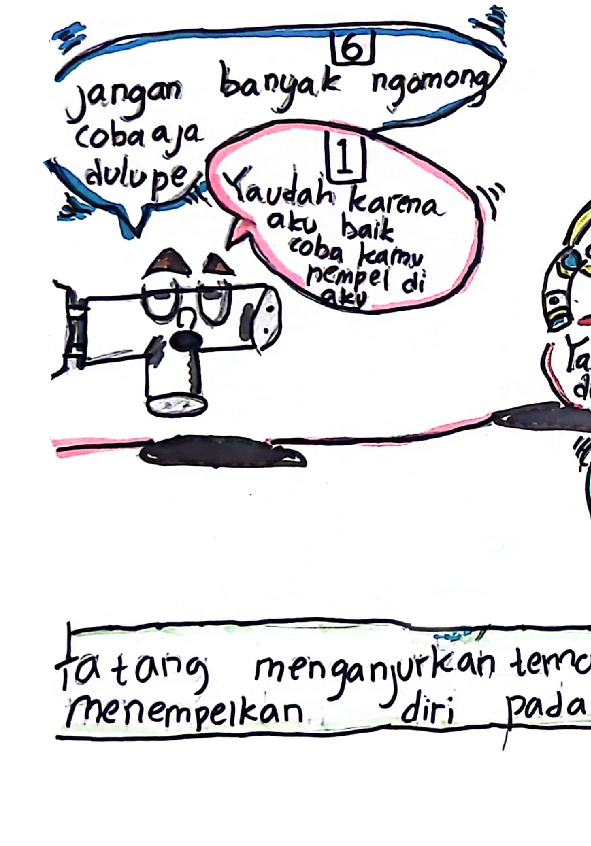 6
jangan banyak ngomong
coba aja
dulu pe
1
Yaudah karena
aku baik
coba kamu
nempel di
aku
Ya
d
Tatang menganjurkan tem
menempelkan diri pada